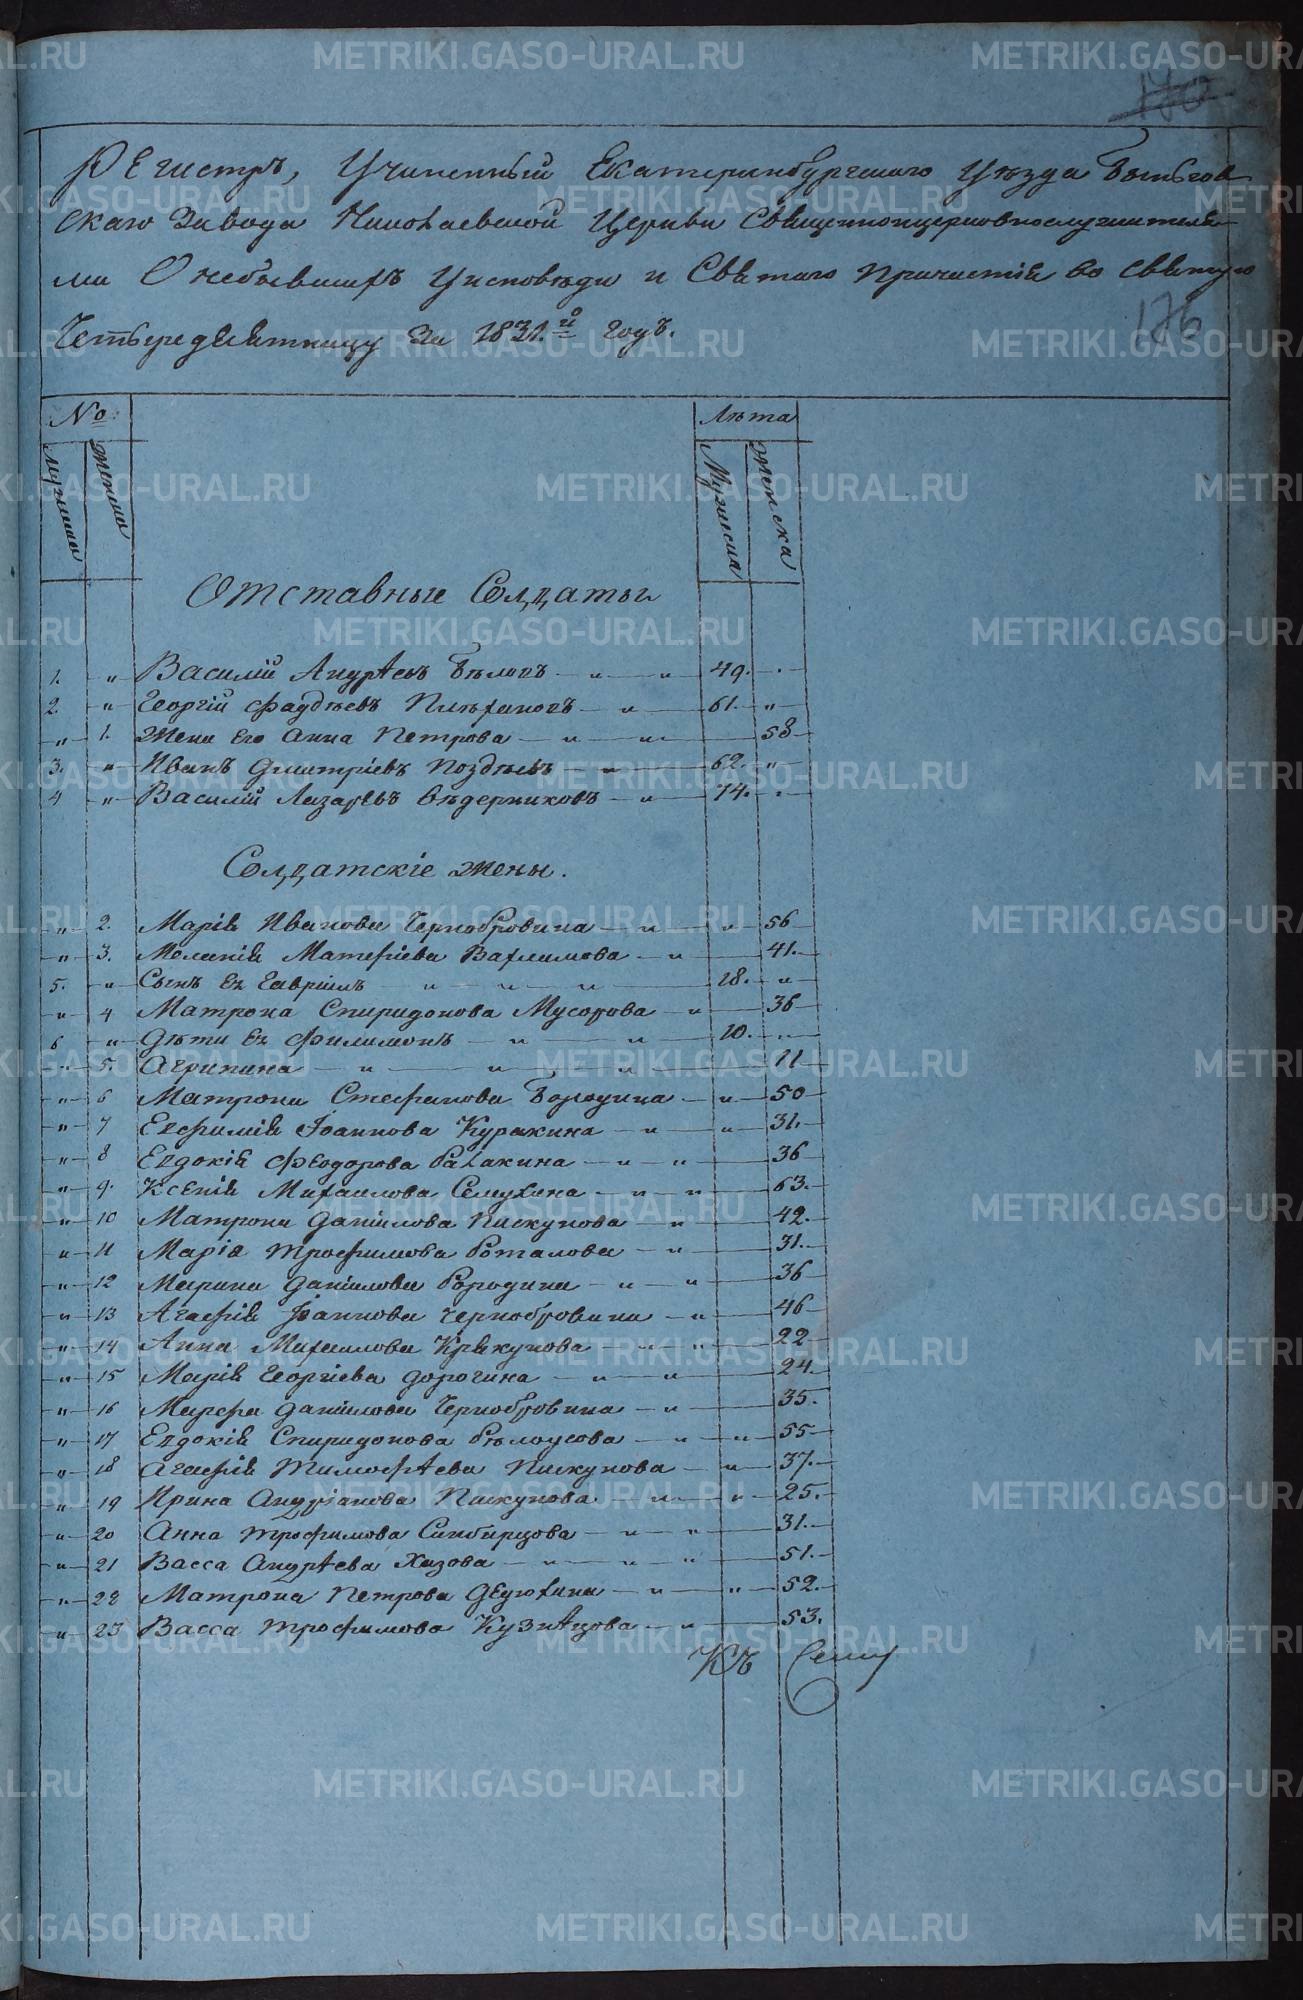 170
Регистръ, Учиненный Екатеринбургскаго Уѣзда Бынгов
скаго Завода Николаевской Церкви Священноицерковнослужителя
ми О небывшихъ Уисповѣди и Святаго Причастія во Святую
Четыредесятницу За 1831.й годъ.
176
№
Лѣта
Мужска Женска
Мужска Женска
Отставные Солдаты
1. „ Василій Андреевъ Бѣловъ — „ — „ — 49.
2. „ Георгій Фаддѣевъ Плѣхановъ — „ — 61. „
„ 1. Жена Его Анна Петрова — „ — „ — 58
3. „ Иванъ Дмитріевъ Поздѣевъ — „ — 62. „
4 „ Василій Лазаревъ Вѣдерниковъ — „ — 74.
Солдатскіе жены.
„ 2. Марія Иванова Чернобровина — „ — „ — 56
„ 3. Меланія Матвѣева Вахлимова — „ — 41.
5. „ Сынъ Ея Гавріилъ — „ — „ — „ — 18. „
„ 4 Матрона Спиридонова Мусорова — „ — 36
6 „ Дѣти Ея Филимонъ — „ — „ — 10.
„ 5. Агрипина — „ — „ — „ — 11
„ 6 Матрона Стефанова Бородина — „ — 50
„ 7 Евфимія Іоаннова Куракина — „ — „ — 31.
„ 8 Евдокія Феодорова — „ — „ — 36
„ 9. Ксенія Михаилова Семухина — „ — „ — 63.
„ 10 Матрона Даніилова Пискунова — „ — 42.
„ 11 Марія Трофимова Поталова — „ — 31.
„ 12 Марина Даніилова Бородина — „ — „ — 36
„ 13 Агафія Іоаннова Чернобровина — „ — 46
„ 14 Анна Михаилова Крякунова — „ — „ — 22
„ 15 Марія Георгіева Дорогина — „ — „ — 24.
„ 16 Марфа Даніилова Чернобровина — „ — 35.
„ 17 Евдокія Спиридонова Бѣлоусова — „ — „ — 55
„ 18 Агафія Тимофѣева Пискунова — „ — 37.
„ 19 Ирина Андріанова Пискунова — „ — „ — 25.
„ 20 Анна Трофимова Сибирцова — „ — „ — 31.
„ 21 Васса Андреева Хизова — „ — „ — „ — 51.
„ 22 Матрона Петрова Дедюхина — „ — „ — 52.
„ 23 Васса Трофимова Кузнецова — „ — 53.
Къ Сему
METRIKI.GASO-URAL.RU